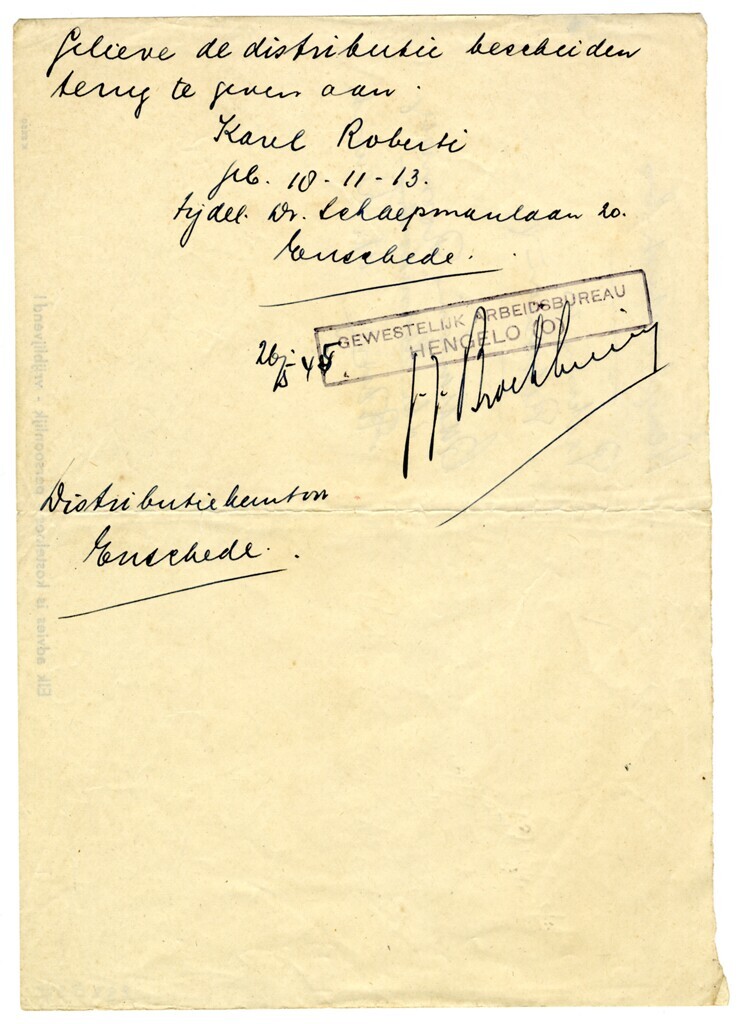 Gelieve de distributie bescheiden
terug te geven aan.
Karel Roberti
geb. 10-11-13.
tijdel. Dr. Schaepmanlaan 20.
Enschede.
GEWESTELIJK ARBEIDSBUREAU
HENGELO (O)
26/5 45.
Distributiekantoor
Enschede.
Elk advies is kosteloos, persoonlijk - vrijblijvend!